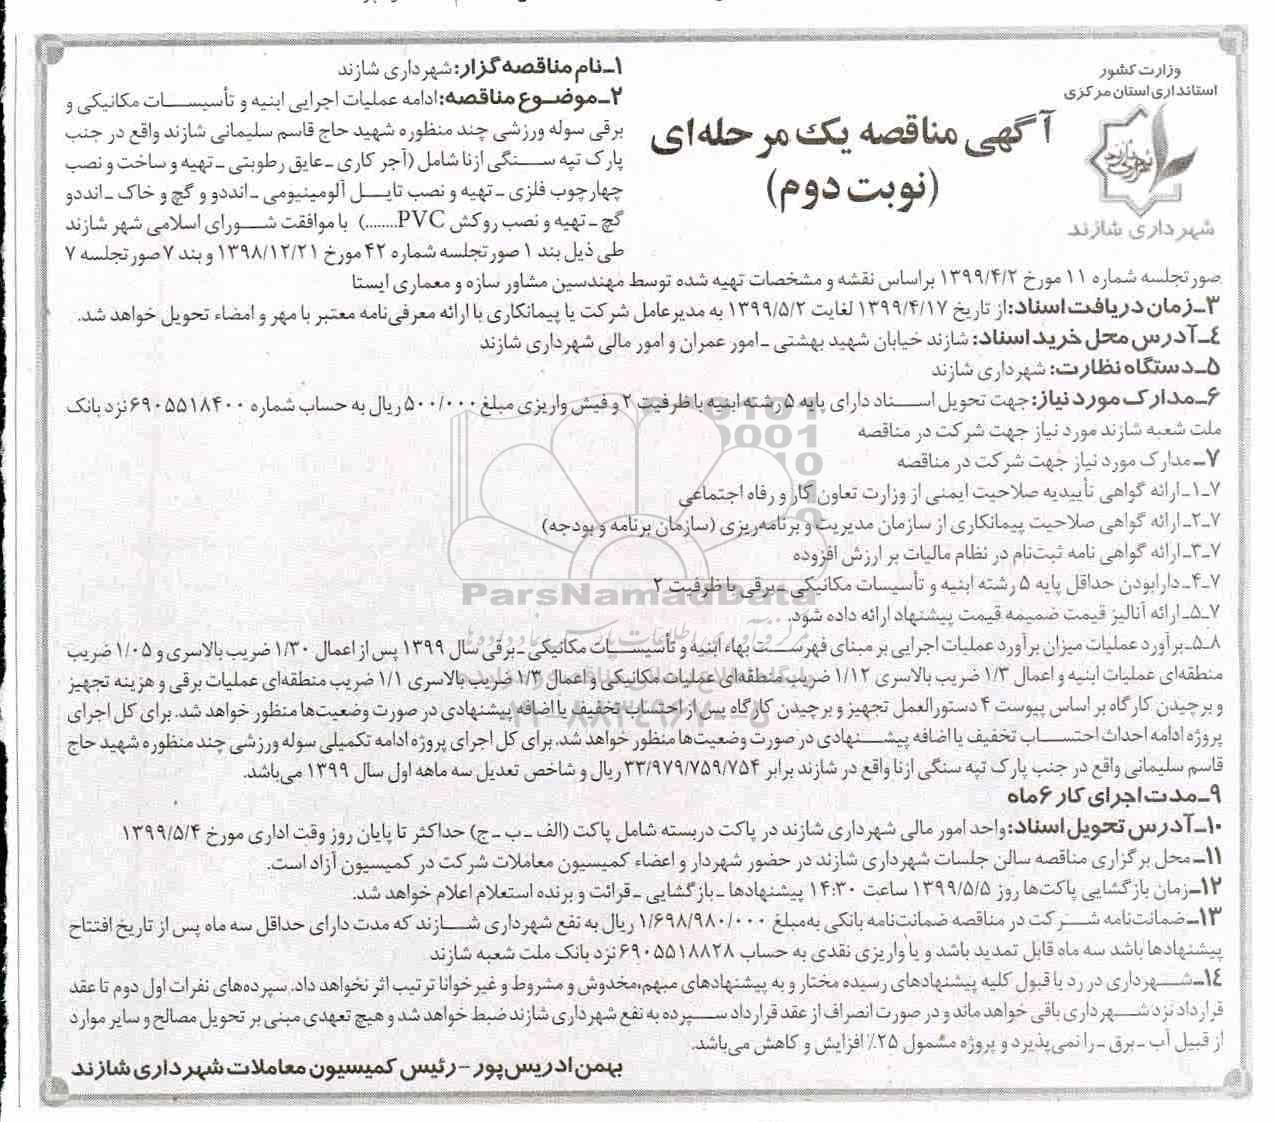 وزارت کشور
استانداری استان مرکزی
شهرداری شازند
آگهی مناقصه یک مرحله‌ای
(نوبت دوم)
۱ـ نام مناقصه گزار: شهرداری شازند
۲ـ موضوع مناقصه: ادامه عملیات اجرایی ابنیه و تأسیسات مکانیکی و
برقی سوله ورزشی چند منظوره شهید حاج قاسم سلیمانی شازند واقع در جنب
پارک تپه سنگی ازنا شامل (آجر کاری ـ عایق رطوبتی ـ تهیه و ساخت و نصب
چهارچوب فلزی ـ تهیه و نصب تایل آلومینیومی ـ انددو و گچ و خاک ـ انددو
گچ ـ تهیه و نصب روکش PVC........) با موافقت شورای اسلامی شهر شازند
طی ذیل بند ۱ صورتجلسه شماره ۴۲ مورخ ۱۳۹۸/۱۲/۲۱ و بند ۷ صورتجلسه ۷
صورتجلسه شماره ۱۱ مورخ ۱۳۹۹/۴/۲ براساس نقشه و مشخصات تهیه شده توسط مهندسین مشاور سازه و معماری ایستا
۳ـ زمان دریافت اسناد: از تاریخ ۱۳۹۹/۴/۱۷ لغایت ۱۳۹۹/۵/۲ به مدیرعامل شرکت یا پیمانکاری با ارائه معرفی‌نامه معتبر با مهر و امضاء تحویل خواهد شد.
۴ـ آدرس محل خرید اسناد: شازند خیابان شهید بهشتی ـ امور عمران و امور مالی شهرداری شازند
۵ـ دستگاه نظارت: شهرداری شازند
۶ـ مدارک مورد نیاز: جهت تحویل اسناد دارای پایه ۵ رشته ابنیه با ظرفیت ۲ و فیش واریزی مبلغ ۵۰۰/۰۰۰ ریال به حساب شماره ۶۹۰۵۵۱۸۴۰۰ نزد بانک
ملت شعبه شازند مورد نیاز جهت شرکت در مناقصه
۷ـ مدارک مورد نیاز جهت شرکت در مناقصه
۷ـ۱ـ ارائه گواهی تأییدیه صلاحیت ایمنی از وزارت تعاون کار و رفاه اجتماعی
۷ـ۲ـ ارائه گواهی صلاحیت پیمانکاری از سازمان مدیریت و برنامه‌ریزی (سازمان برنامه و بودجه)
۷ـ۳ـ ارائه گواهی نامه ثبت‌نام در نظام مالیات بر ارزش افزوده
۷ـ۴ـ دارابودن حداقل پایه ۵ رشته ابنیه و تأسیسات مکانیکی ـ برقی با ظرفیت ۲
ParsNamadData
۷ـ۵ـ ارائه آنالیز قیمت ضمیمه قیمت پیشنهاد ارائه داده شود.
۸ـ۵ـ برآورد عملیات میزان برآورد عملیات اجرایی بر مبنای فهرست بهاء ابنیه و تأسیسات مکانیکی ـ برقی سال ۱۳۹۹ پس از اعمال ۱/۳۰ ضریب بالاسری و ۱/۰۵ ضریب
منطقه‌ای عملیات ابنیه و اعمال ۱/۳ ضریب بالاسری ۱/۱۲ ضریب منطقه‌ای عملیات مکانیکی و اعمال ۱/۳ ضریب بالاسری ۱/۱ ضریب منطقه‌ای عملیات برقی و هزینه تجهیز
و برچیدن کارگاه بر اساس پیوست ۴ دستورالعمل تجهیز و برچیدن کارگاه پس از احتساب تخفیف یا اضافه پیشنهادی در صورت وضعیت‌ها منظور خواهد شد. برای کل اجرای
پروژه ادامه احداث احتساب تخفیف یا اضافه پیشنهادی در صورت وضعیت‌ها منظور خواهد شد. برای کل اجرای پروژه ادامه تکمیلی سوله ورزشی چند منظوره شهید حاج
قاسم سلیمانی واقع در جنب پارک تپه سنگی ازنا واقع در شازند برابر ۳۳/۹۷۹/۷۵۹/۷۵۴ ریال و شاخص تعدیل سه ماهه اول سال ۱۳۹۹ می‌باشد.
۹ـ مدت اجرای کار ۶ ماه
۱۰ـ آدرس تحویل اسناد: واحد امور مالی شهرداری شازند در پاکت دربسته شامل پاکت (الف ـ ب ـ ج) حداکثر تا پایان روز وقت اداری مورخ ۱۳۹۹/۵/۴
۱۱ـ محل برگزاری مناقصه سالن جلسات شهرداری شازند در حضور شهردار و اعضاء کمیسیون معاملات شرکت در کمیسیون آزاد است.
۱۲ـ زمان بازگشایی پاکت‌ها روز ۱۳۹۹/۵/۵ ساعت ۱۴:۳۰ پیشنهادها ـ بازگشایی ـ قرائت و برنده استعلام اعلام خواهد شد.
۱۳ـ ضمانت‌نامه شرکت در مناقصه ضمانت‌نامه بانکی به‌مبلغ ۱/۶۹۸/۹۸۰/۰۰۰ ریال به نفع شهرداری شازند که مدت دارای حداقل سه ماه پس از تاریخ افتتاح
پیشنهادها باشد سه ماه قابل تمدید باشد و یا واریزی نقدی به حساب ۶۹۰۵۵۱۸۸۲۸ نزد بانک ملت شعبه شازند
۱۴ـ شهرداری در رد یا قبول کلیه پیشنهادهای رسیده مختار و به پیشنهادهای مبهم، مخدوش و مشروط و غیرخوانا ترتیب اثر نخواهد داد. سپرده‌های نفرات اول دوم تا عقد
قرارداد نزد شهرداری باقی خواهد ماند و در صورت انصراف از عقد قرارداد سپرده به نفع شهرداری شازند ضبط خواهد شد و هیچ تعهدی مبنی بر تحویل مصالح و سایر موارد
از قبیل آب ـ برق ـ را نمی‌پذیرد و پروژه مشمول ۲۵٪ افزایش و کاهش می‌باشد.
بهمن ادریس‌پور - رئیس کمیسیون معاملات شهرداری شازند